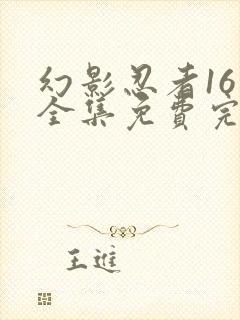 幻影忍者16
全集免費完
王進